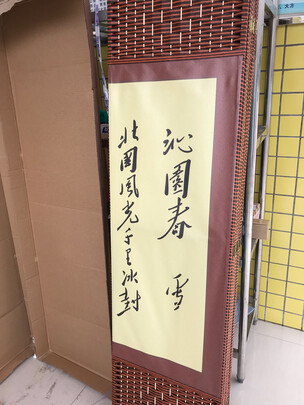 沁園春 雪
北国風光千里冰封